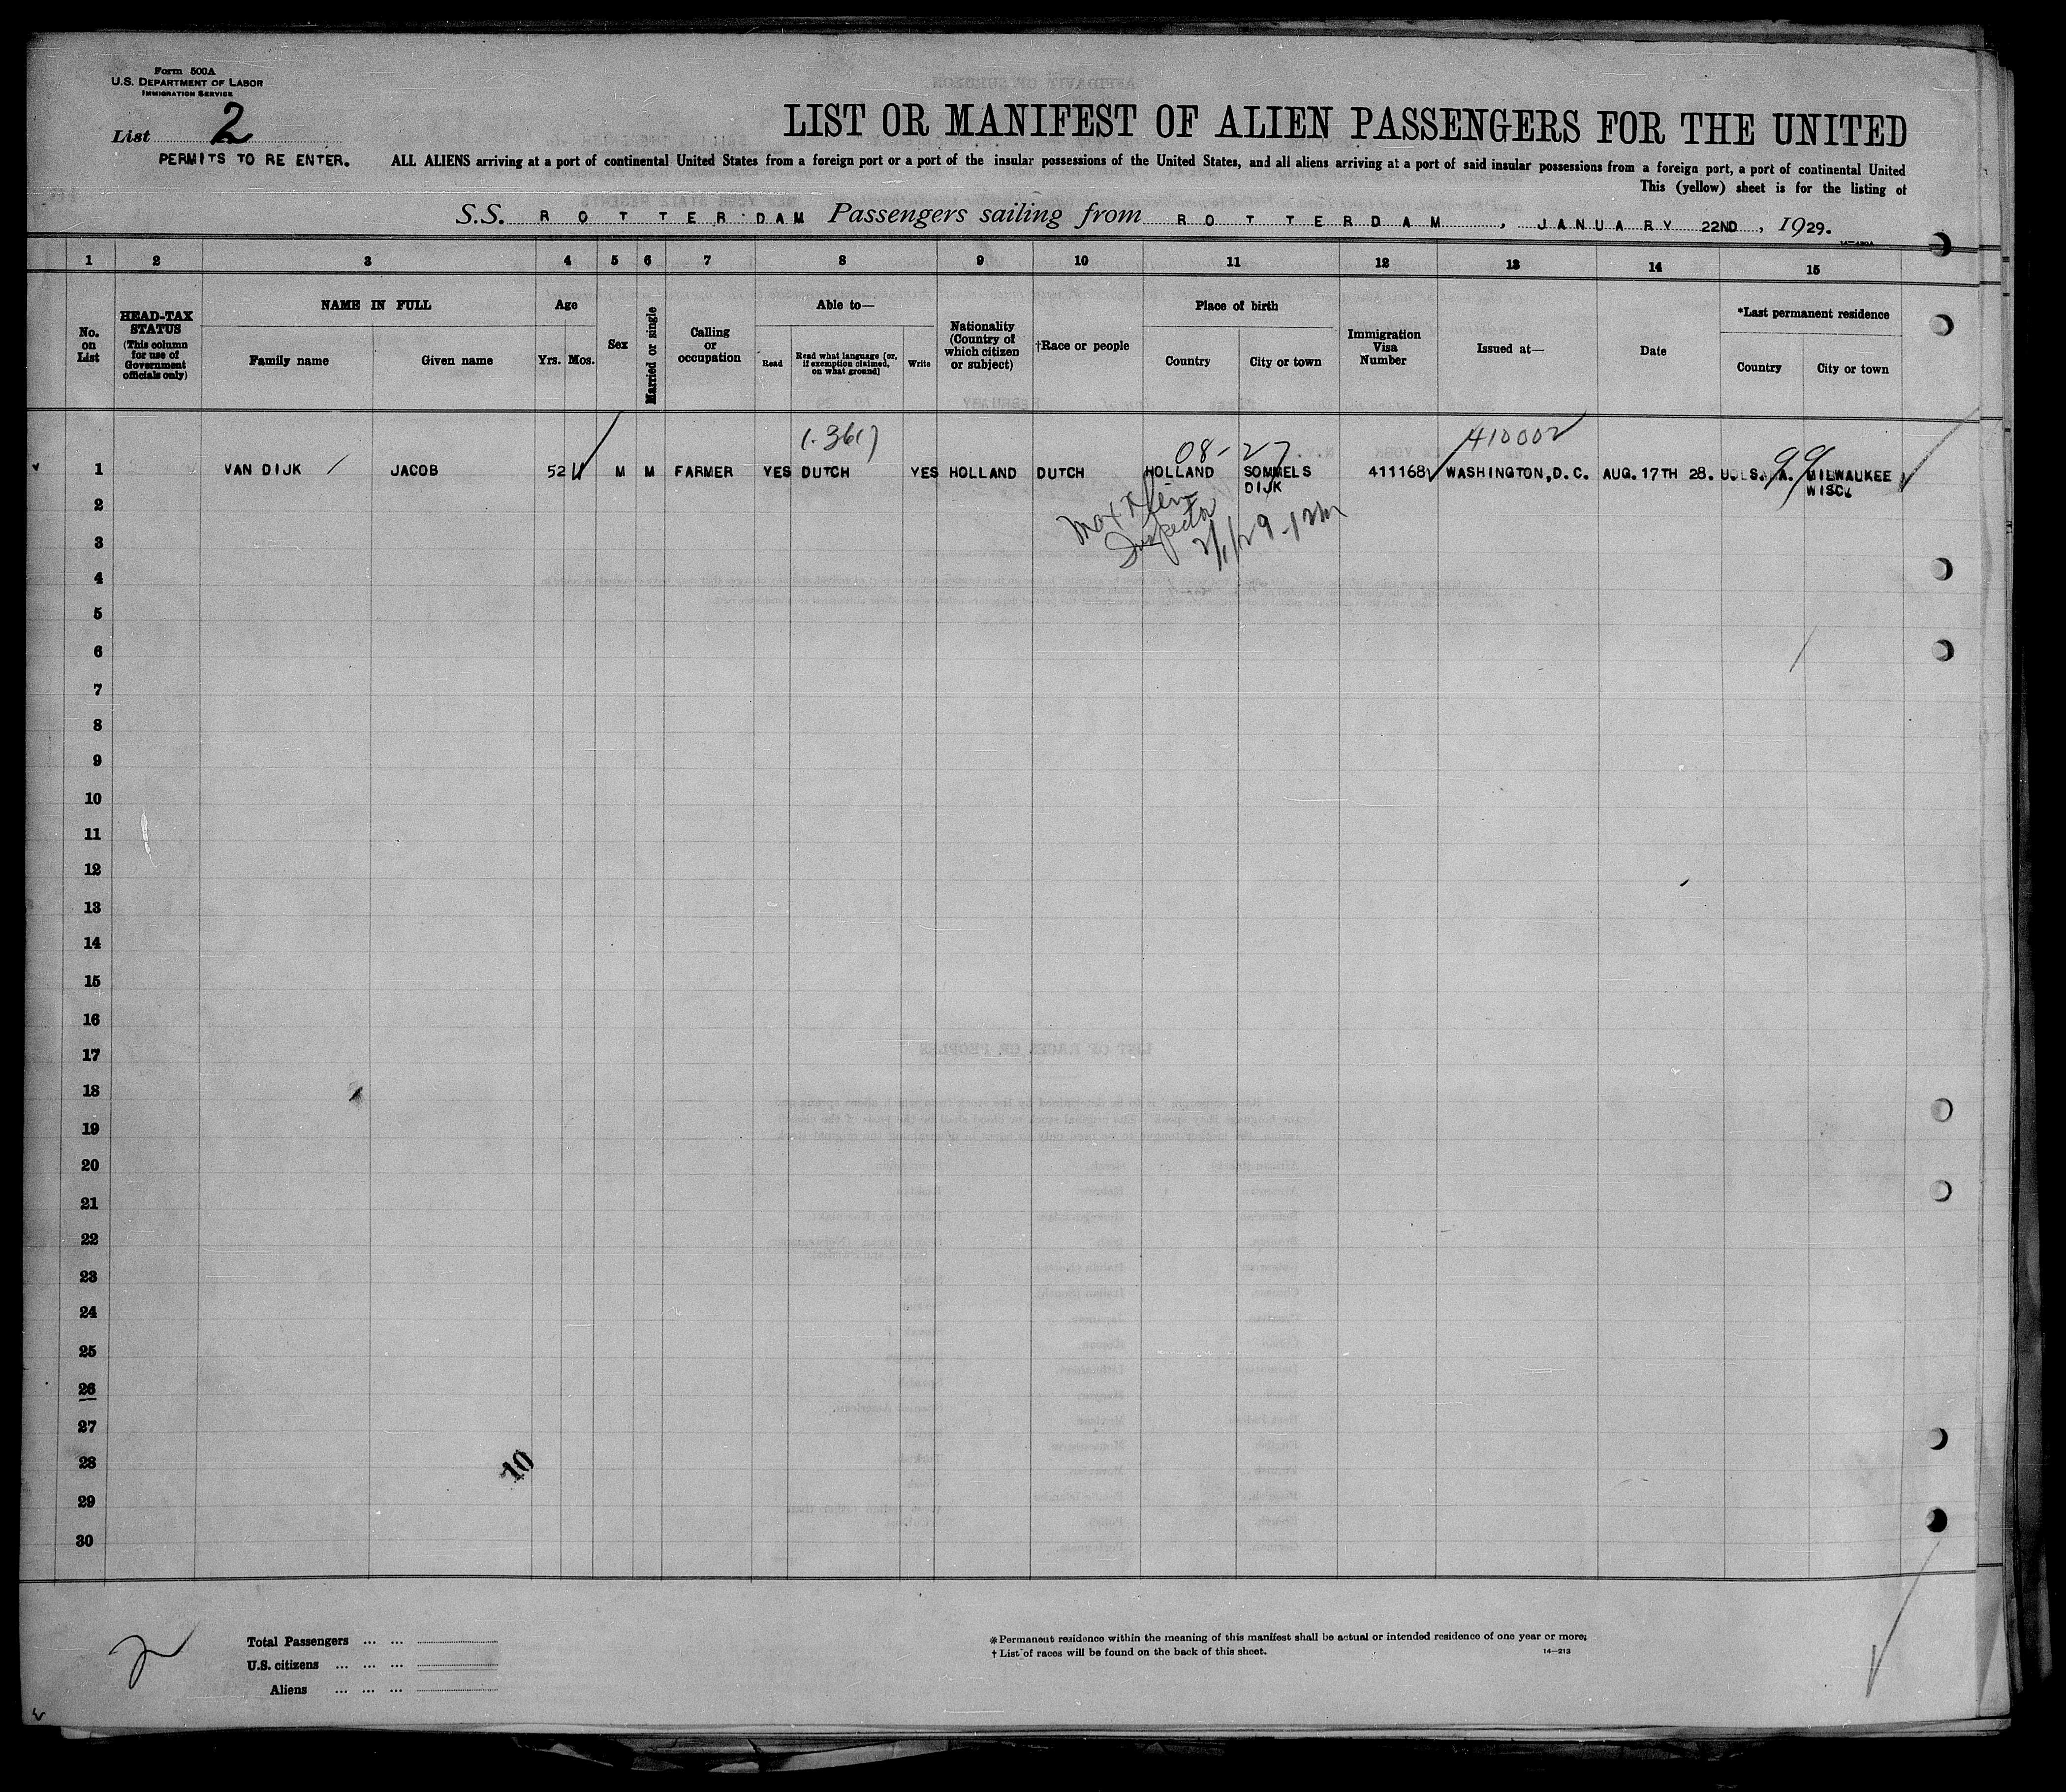 Form 500A
U.S. DEPARTMENT OF LABOR
IMMIGRATION SERVICE
List 2
PERMITS TO RE ENTER.
LIST OR MANIFEST OF ALIEN PASSENGERS FOR THE UNITED
ALL ALIENS arriving at a port of continental United States from a foreign port or a port of the insular possessions of the United States, and all aliens arriving at a port of said insular possessions from a foreign port, a port of continental United
This (yellow) sheet is for the listing of
S.S. ROTTERDAM Passengers sailing from ROTTERDAM, JANUARY 22ND, 1929.
1 2 3 4 5 6 7 8 9 10 11 12 13 14 15
No. on List
HEAD-TAX STATUS (This column for use of Government officials only)
NAME IN FULL
Family name Given name
Age
Yrs. Mos.
Sex
Married or single
Calling or occupation
Able to—
Read Read what language [or, if exemption claimed, on what ground] Write
Nationality (Country of which citizen or subject)
†Race or people
Place of birth
Country City or town
Immigration Visa Number
Issued at—
Date
*Last permanent residence
Country City or town
08-27 410002
1 VAN DIJK JACOB 52 M M FARMER YES DUTCH YES HOLLAND DUTCH HOLLAND SOMMELS 411168 WASHINGTON, D.C. AUG. 17TH 28. U.S.A. 99 MILWAUKEE
DIJK WISC.
Max Klein
Inspector
2/1/29
2
3
4
5
6
7
8
9
10
11
12
13
14
15
16
17
18
19
20
21
22
23
24
25
26
27
28
29
30
10
2
Total Passengers ... ...
U.S. citizens ... ... ...
Aliens ... ... ...
*Permanent residence within the meaning of this manifest shall be actual or intended residence of one year or more.
† List of races will be found on the back of this sheet.
14—213